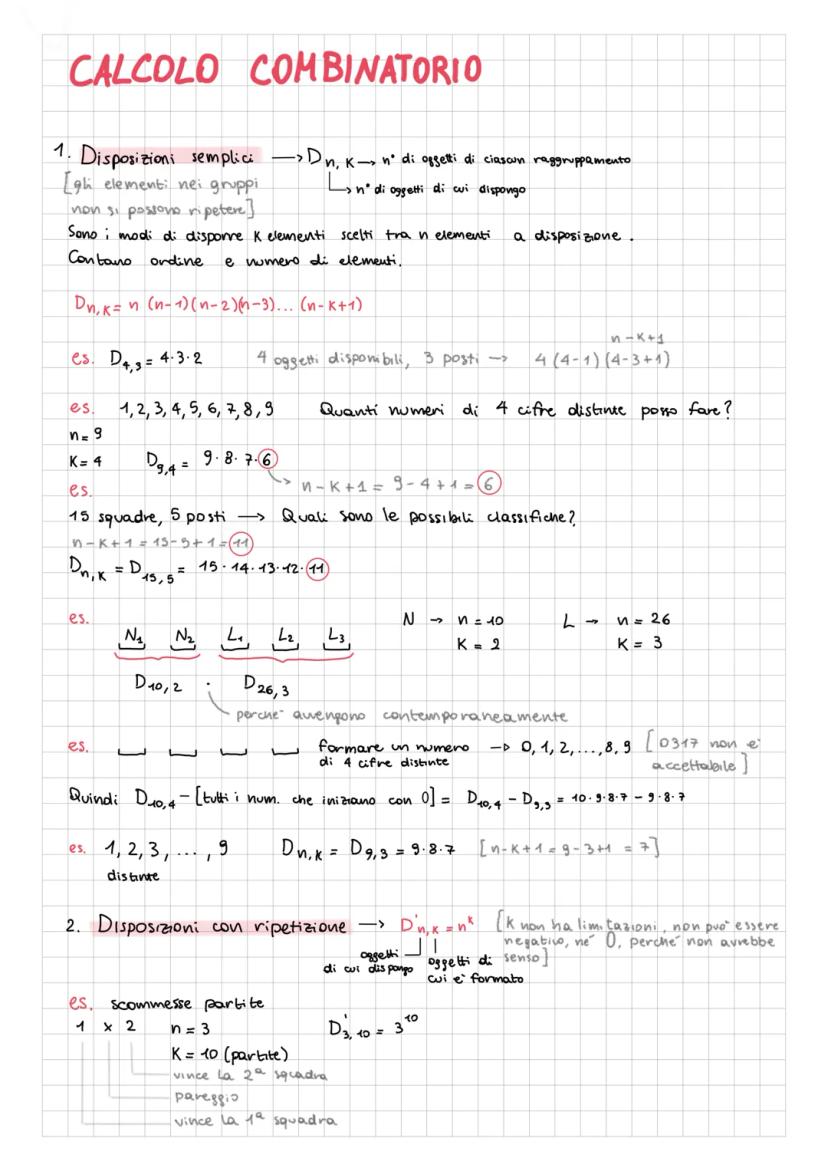 CALCOLO COMBINATORIO
1. Disposizioni semplici → D n, K → n° di oggetti di ciascun raggruppamento
[gli elementi nei gruppi ↳ n° di oggetti di cui dispongo
non si possono ripetere]
Sono i modi di disporre K elementi scelti tra n elementi a disposizione.
Contano ordine e numero di elementi.
Dn,K = n (n-1)(n-2)(n-3)... (n-K+1)
n-K+1
es. D4,3 = 4·3·2 4 oggetti disponibili, 3 posti → 4 (4-1) (4-3+1)
es. 1,2,3,4,5,6,7,8,9 Quanti numeri di 4 cifre distinte posso fare?
n = 9
K = 4 D9,4 = 9·8·7·6
n-K+1 = 9-4+1 = 6
es.
15 squadre, 5 posti → Quali sono le possibili classifiche?
n-K+1 = 15-5+1 = 11
Dn,K = D15,5 = 15·14·13·12·11
es. N → n = 10 L → n = 26
N1 N2 L1 L2 L3 K = 2 K = 3
D10,2 · D26,3
perche' avvengono contemporaneamente
es. formare un numero → 0, 1, 2, ..., 8, 9 [0317 non e'
di 4 cifre distinte accettabile]
Quindi D10,4 - [tutti i num. che iniziano con 0] = D10,4 - D9,3 = 10·9·8·7 - 9·8·7
es. 1, 2, 3, ..., 9 Dn,K = D9,3 = 9·8·7 [n-K+1 = 9-3+1 = 7]
distinte
2. Disposizioni con ripetizione → D'n,K = n^K [K non ha limitazioni, non puo' essere
negativo, ne' 0, perche' non avrebbe
senso]
oggetti di cui dispongo
oggetti di cui e' formato
es. scommesse partite
1 x 2 n = 3 D'3,10 = 3^10
K = 10 (partite)
vince la 2ª squadra
pareggio
vince la 1ª squadra